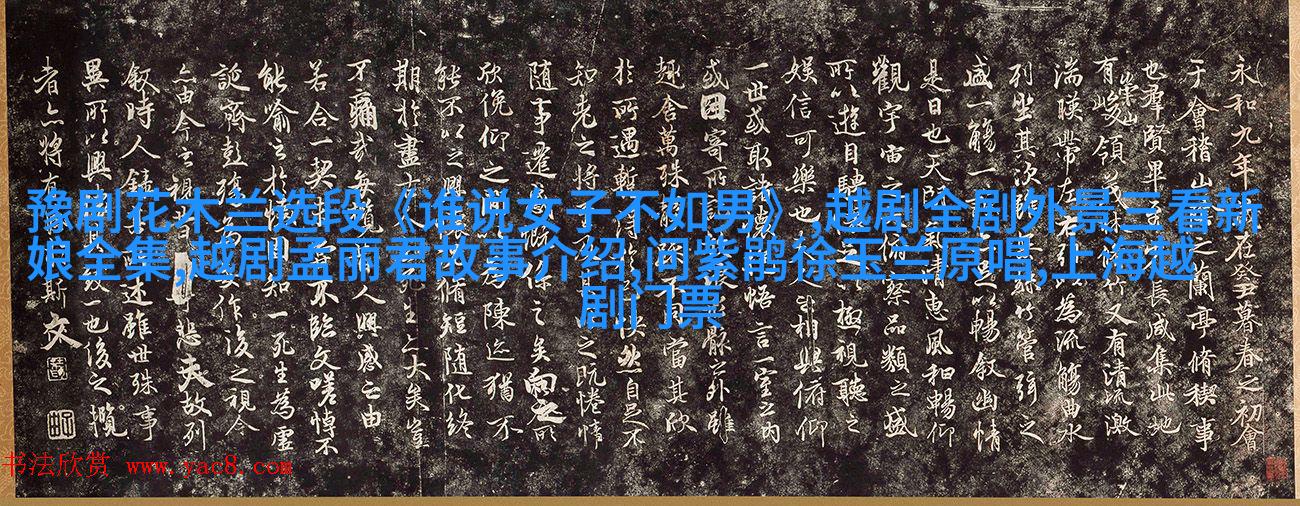 豫剧花木兰选段《谁说女子不如男》,越剧全剧外景三看新
娘全集,越剧孟丽君故事介绍,问紫鹃徐玉兰原唱,上海越
剧门票
永和九年在癸丑暮春之初會
于會稽山之蘭亭脩稧事
也羣賢畢至長咸集此地
有崇山峻領茂林竹又有清流激
湍暎帶左右引以為流觴曲水
列坐其次竹管弦之
盛一觴一以暢叙幽情
是日也天朗氣清惠風和暢仰
觀宇宙之俯察品類之盛
所以遊目騁極視聽之
娛信可樂也相與俯仰
一世或取諸悟言一室之內
或因寄所骸之外雖
趣舍萬殊不同當其欣
於所遇暫怏然自足不
知老之將之既惓情
隨事遷感慨係之矣向之所
欣俛仰之間為陳迹猶不
能不以之興懷脩短隨化終
期於盡古生亦大矣豈
不痛哉每人興感之由
若合一契不臨文嗟悼不
能喻之於懷固知一死生為虛
誕齊彭殤為妄作後之視今
亦由今之視昔悲夫故列
叙時人錄述雖世殊事
異所以興致一也後之攬
者亦將有斯文
书法欣赏 www.yac8.com